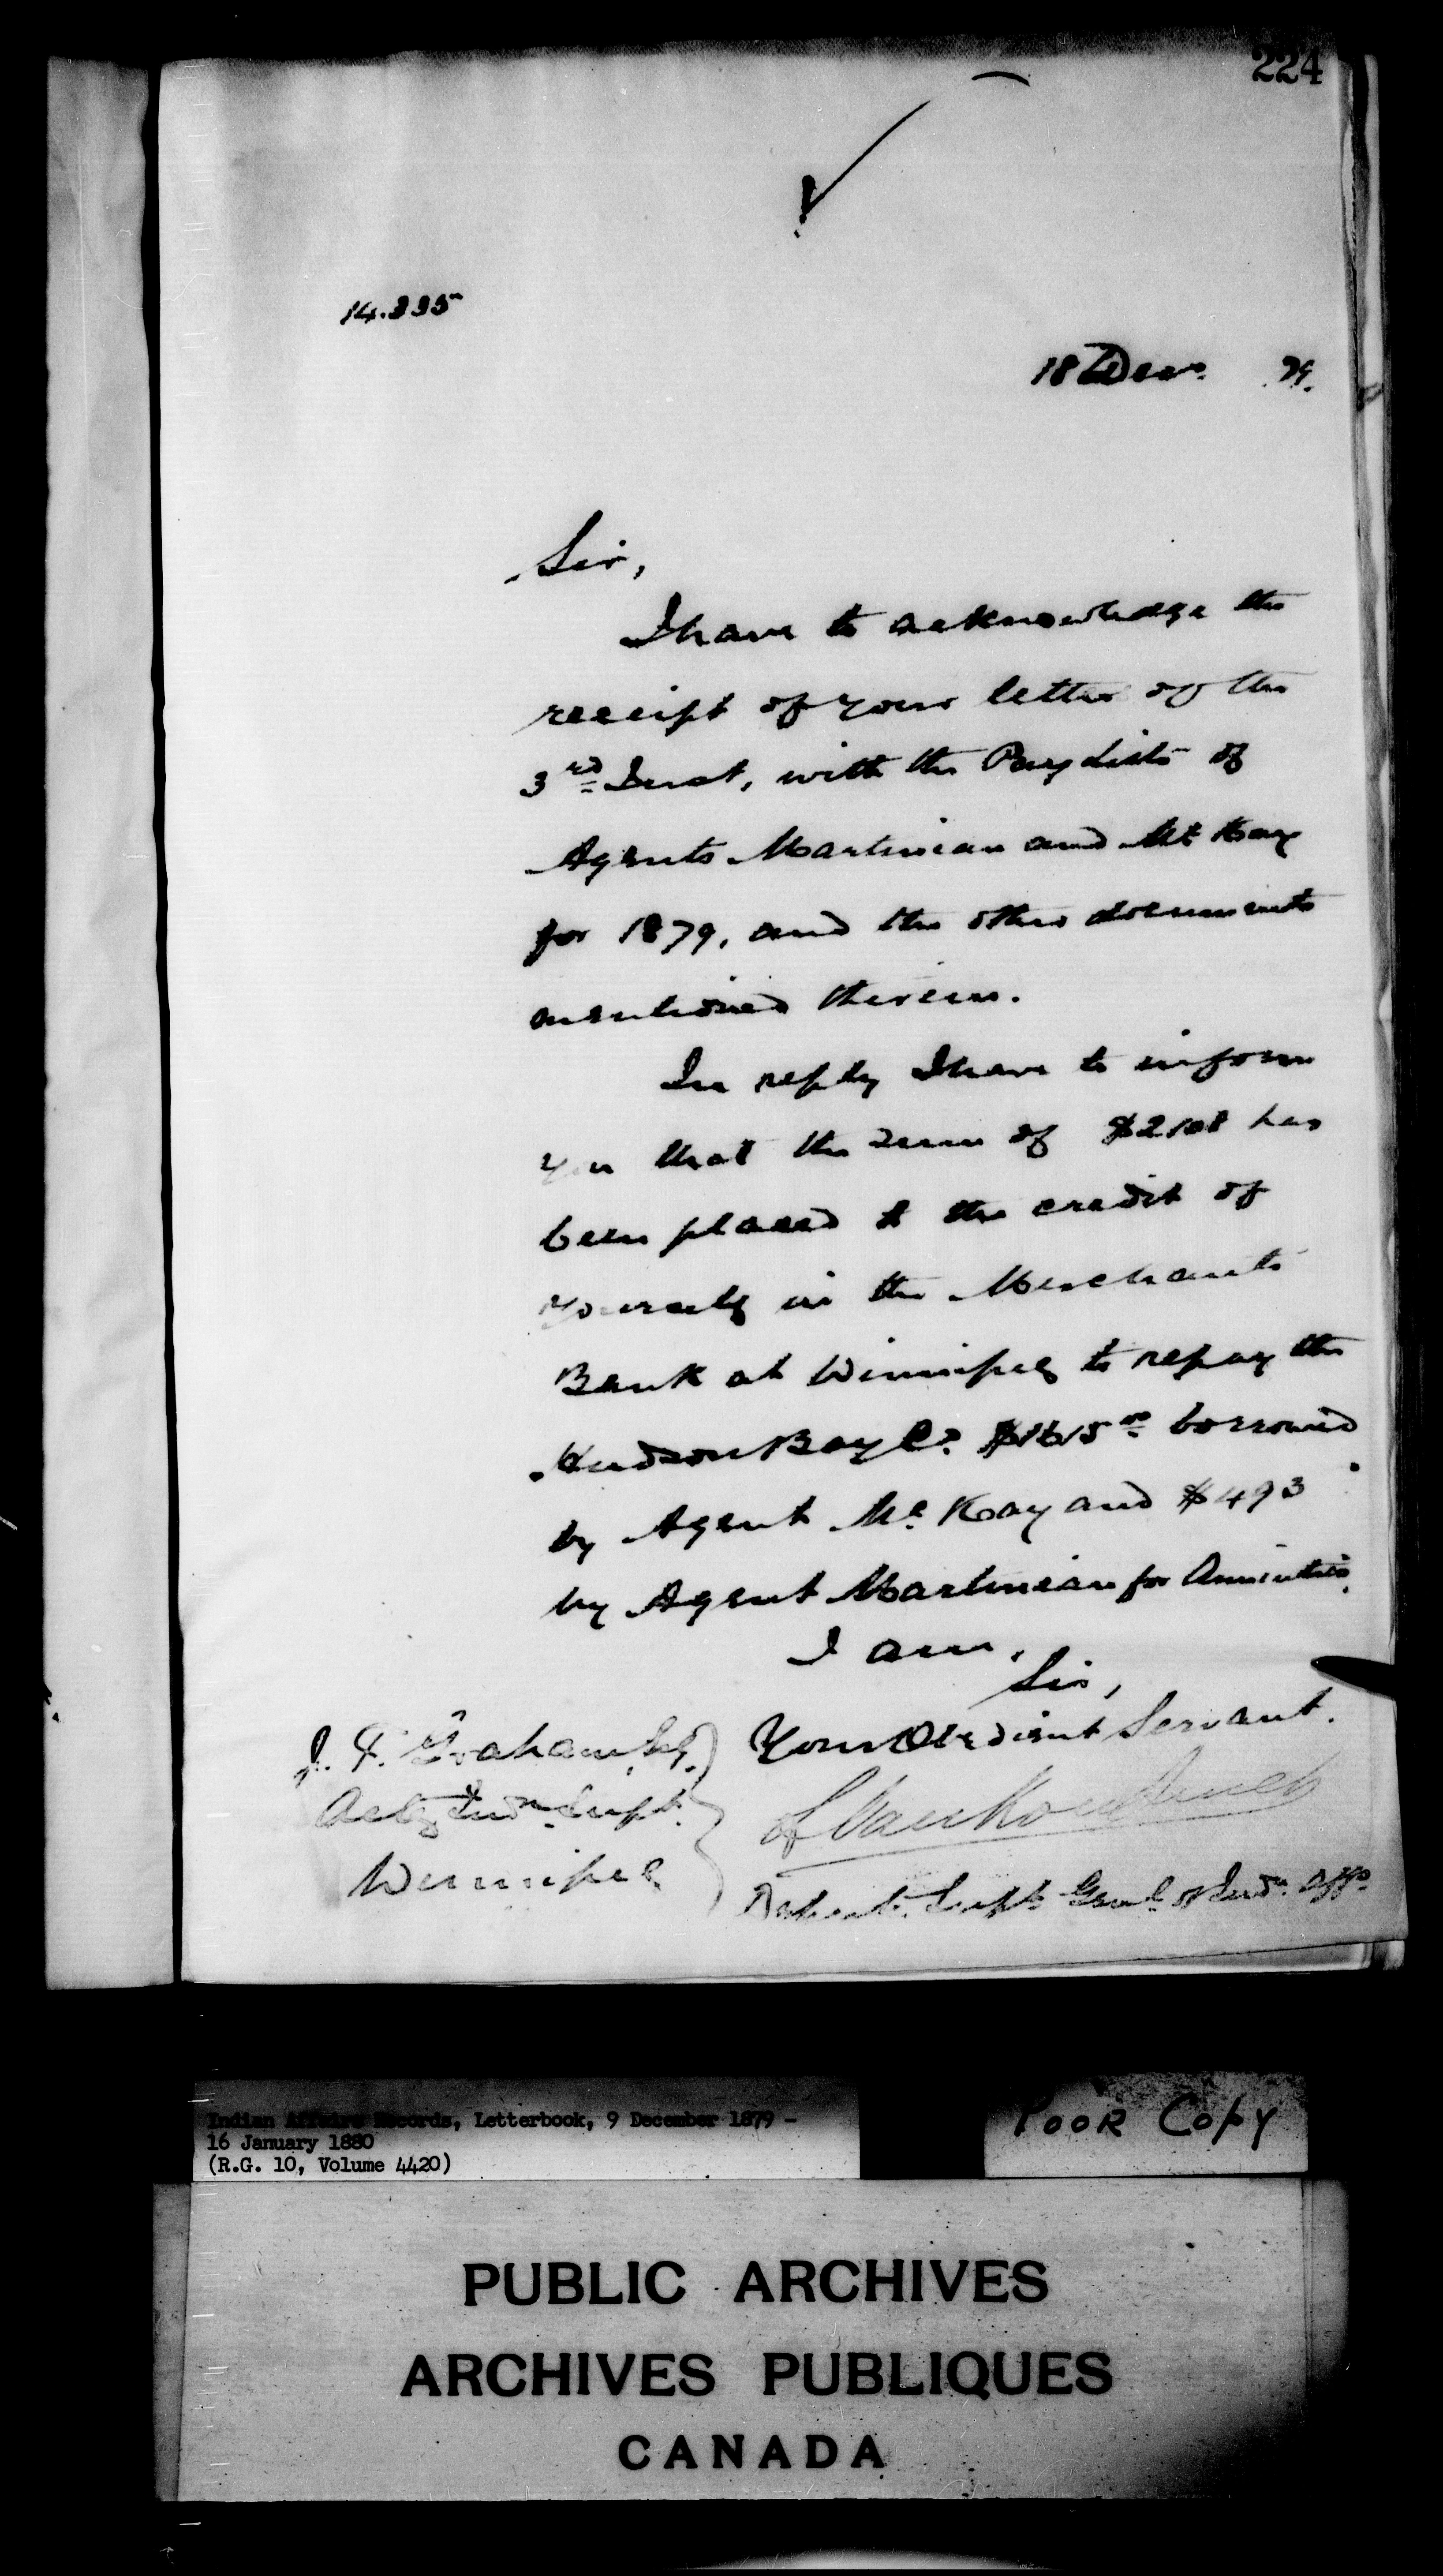 224
14.335
18 Decr. 79.
Sir,
I have to acknowledge the
receipt of your letter of the
3rd Inst, with the Paylists of
Agents Martineau and McKay
for 1879, and the other documents
mentioned therein.
In reply I have to inform
you that the sum of $2108 has
been placed to the credit of
yourself in the Merchants
Bank at Winnipeg to repay the
Hudson Bay Co. $1615 00 borrowed
by Agent Mc Kay and $493
by Agent Martineau for Annuities.
I am,
Sir,
Your Obedient Servant.
J. F. Graham, Esq.
Actg Indn. Supt.
Winnipeg
L VanKoughnet
Deputy Supt Genl. of Indn. Affrs.
Indian Affairs Records, Letterbook, 9 December 1879 -
16 January 1880
(R.G. 10, Volume 4420)
POOR COPY
PUBLIC ARCHIVES
ARCHIVES PUBLIQUES
CANADA